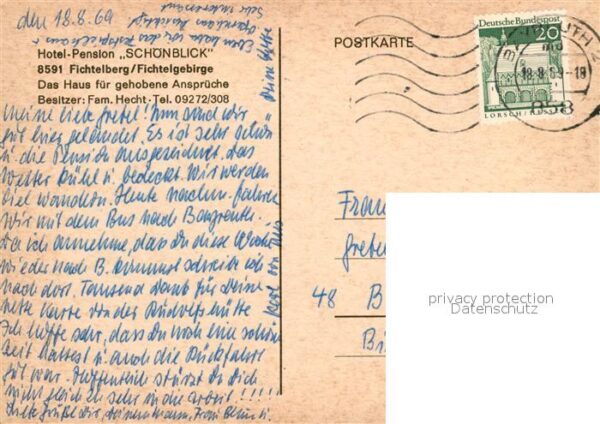 den 18.8.69
Hotel-Pension „SCHÖNBLICK"
8591 Fichtelberg/Fichtelgebirge
Das Haus für gehobene Ansprüche
Besitzer: Fam. Hecht · Tel. 09272/308
Meine liebe Gretel! Nun sind wir
gut hier gelandet. Es ist sehr schön
u. die Pension ausgezeichnet. Das
Wetter kühl u. bedeckt. Wir werden
viel wandern. Heute nachm. fahren
wir mit dem Bus nach Bayreuth.
Da ich annehme, dass Du diese Woche
wieder nach B. kommst schreibe ich
nach dort. Tausend Dank für Deine
nette Karte von der Rudolfshütte
Ich hoffe sehr, dass Du noch eine schöne
Zeit hattest u. auch die Rückfahrt
gut war. Hoffentlich stürzt Du Dich
nicht gleich zu sehr in die Arbeit !!!!!
Eben haben wir das Festspielhaus
sehr interessant
POSTKARTE
Deutsche Bundespost
20
LORSCH/HESSEN
18.8.69-18
858
Frau
Grete
48 B
privacy protection
Datenschutz